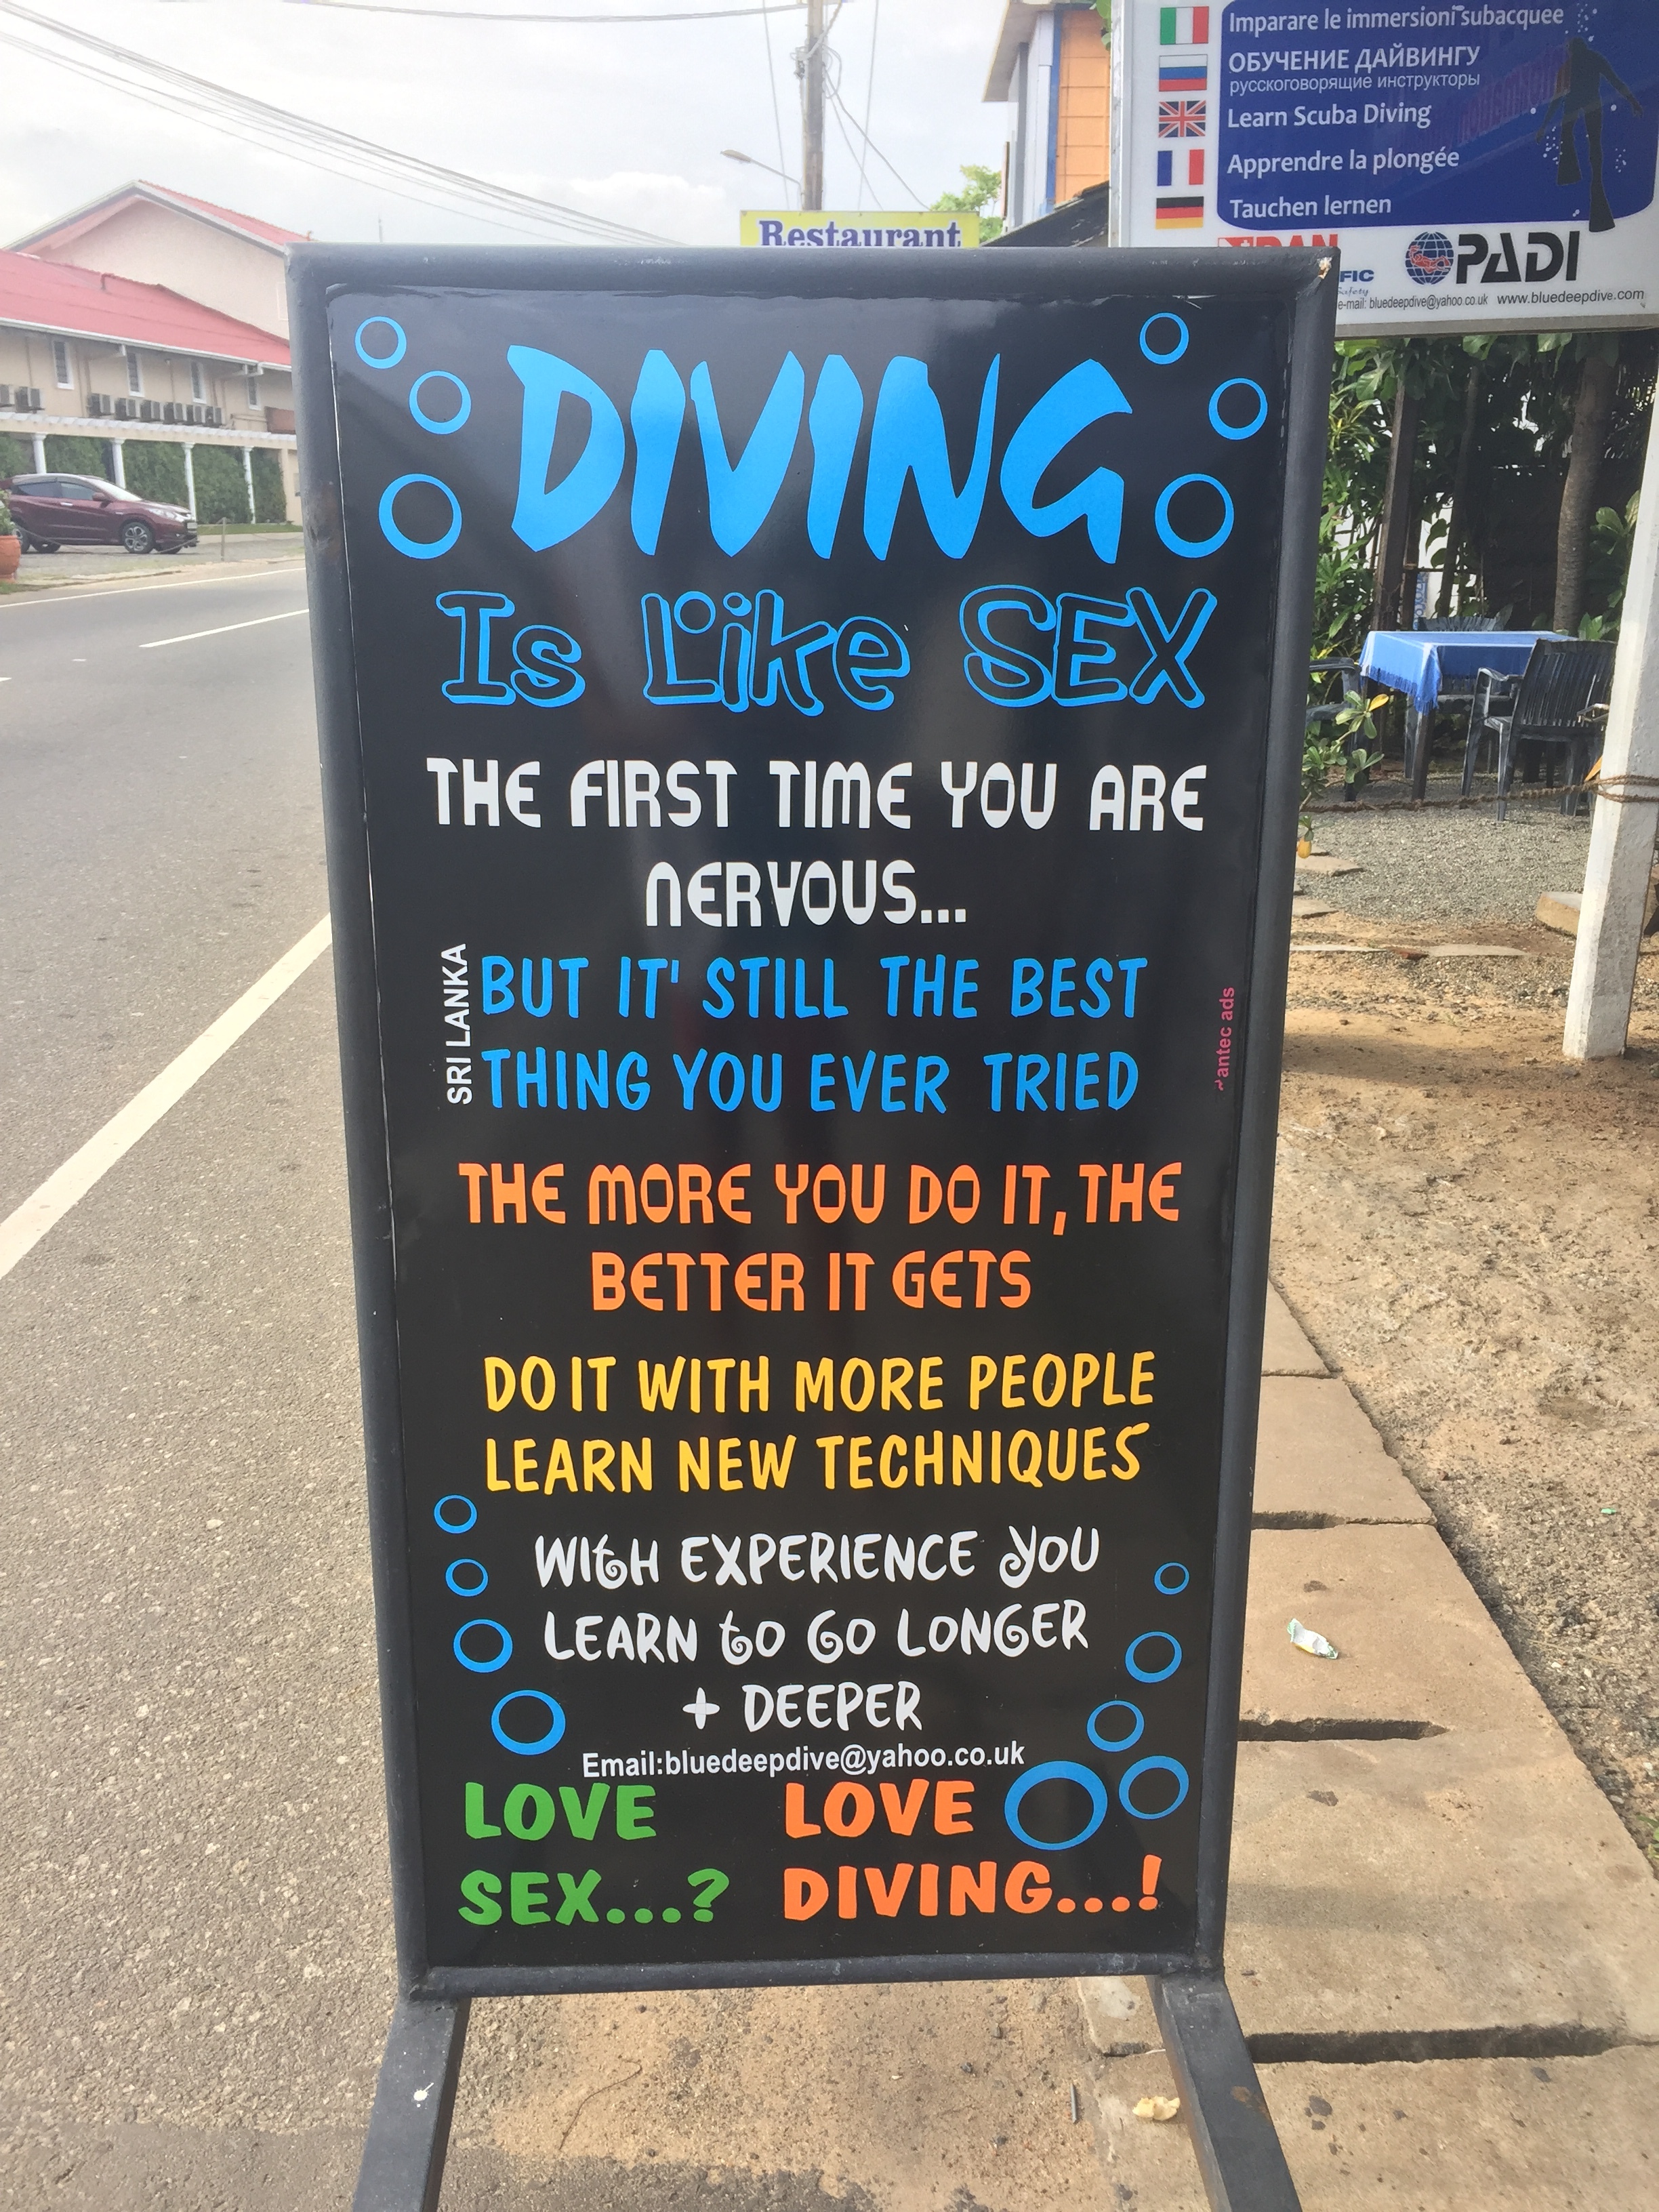 Imparare le immersioni subacquee
ОБУЧЕНИЕ ДАЙВИНГУ
русскоговорящие инструкторы
Learn Scuba Diving
Apprendre la plongée
Tauchen lernen
PADI
e-mail: bluedeepdive@yahoo.co.uk www.bluedeepdive.com
Restaurant
DIVING
Is Like SEX
THE FIRST TIME YOU ARE
NERVOUS...
SRI LANKA
BUT IT' STILL THE BEST
THING YOU EVER TRIED
antec ads
THE MORE YOU DO IT, THE
BETTER IT GETS
DO IT WITH MORE PEOPLE
LEARN NEW TECHNIQUES
WITH EXPERIENCE YOU
LEARN to GO LONGER
+ DEEPER
Email:bluedeepdive@yahoo.co.uk
LOVE LOVE
SEX...? DIVING...!